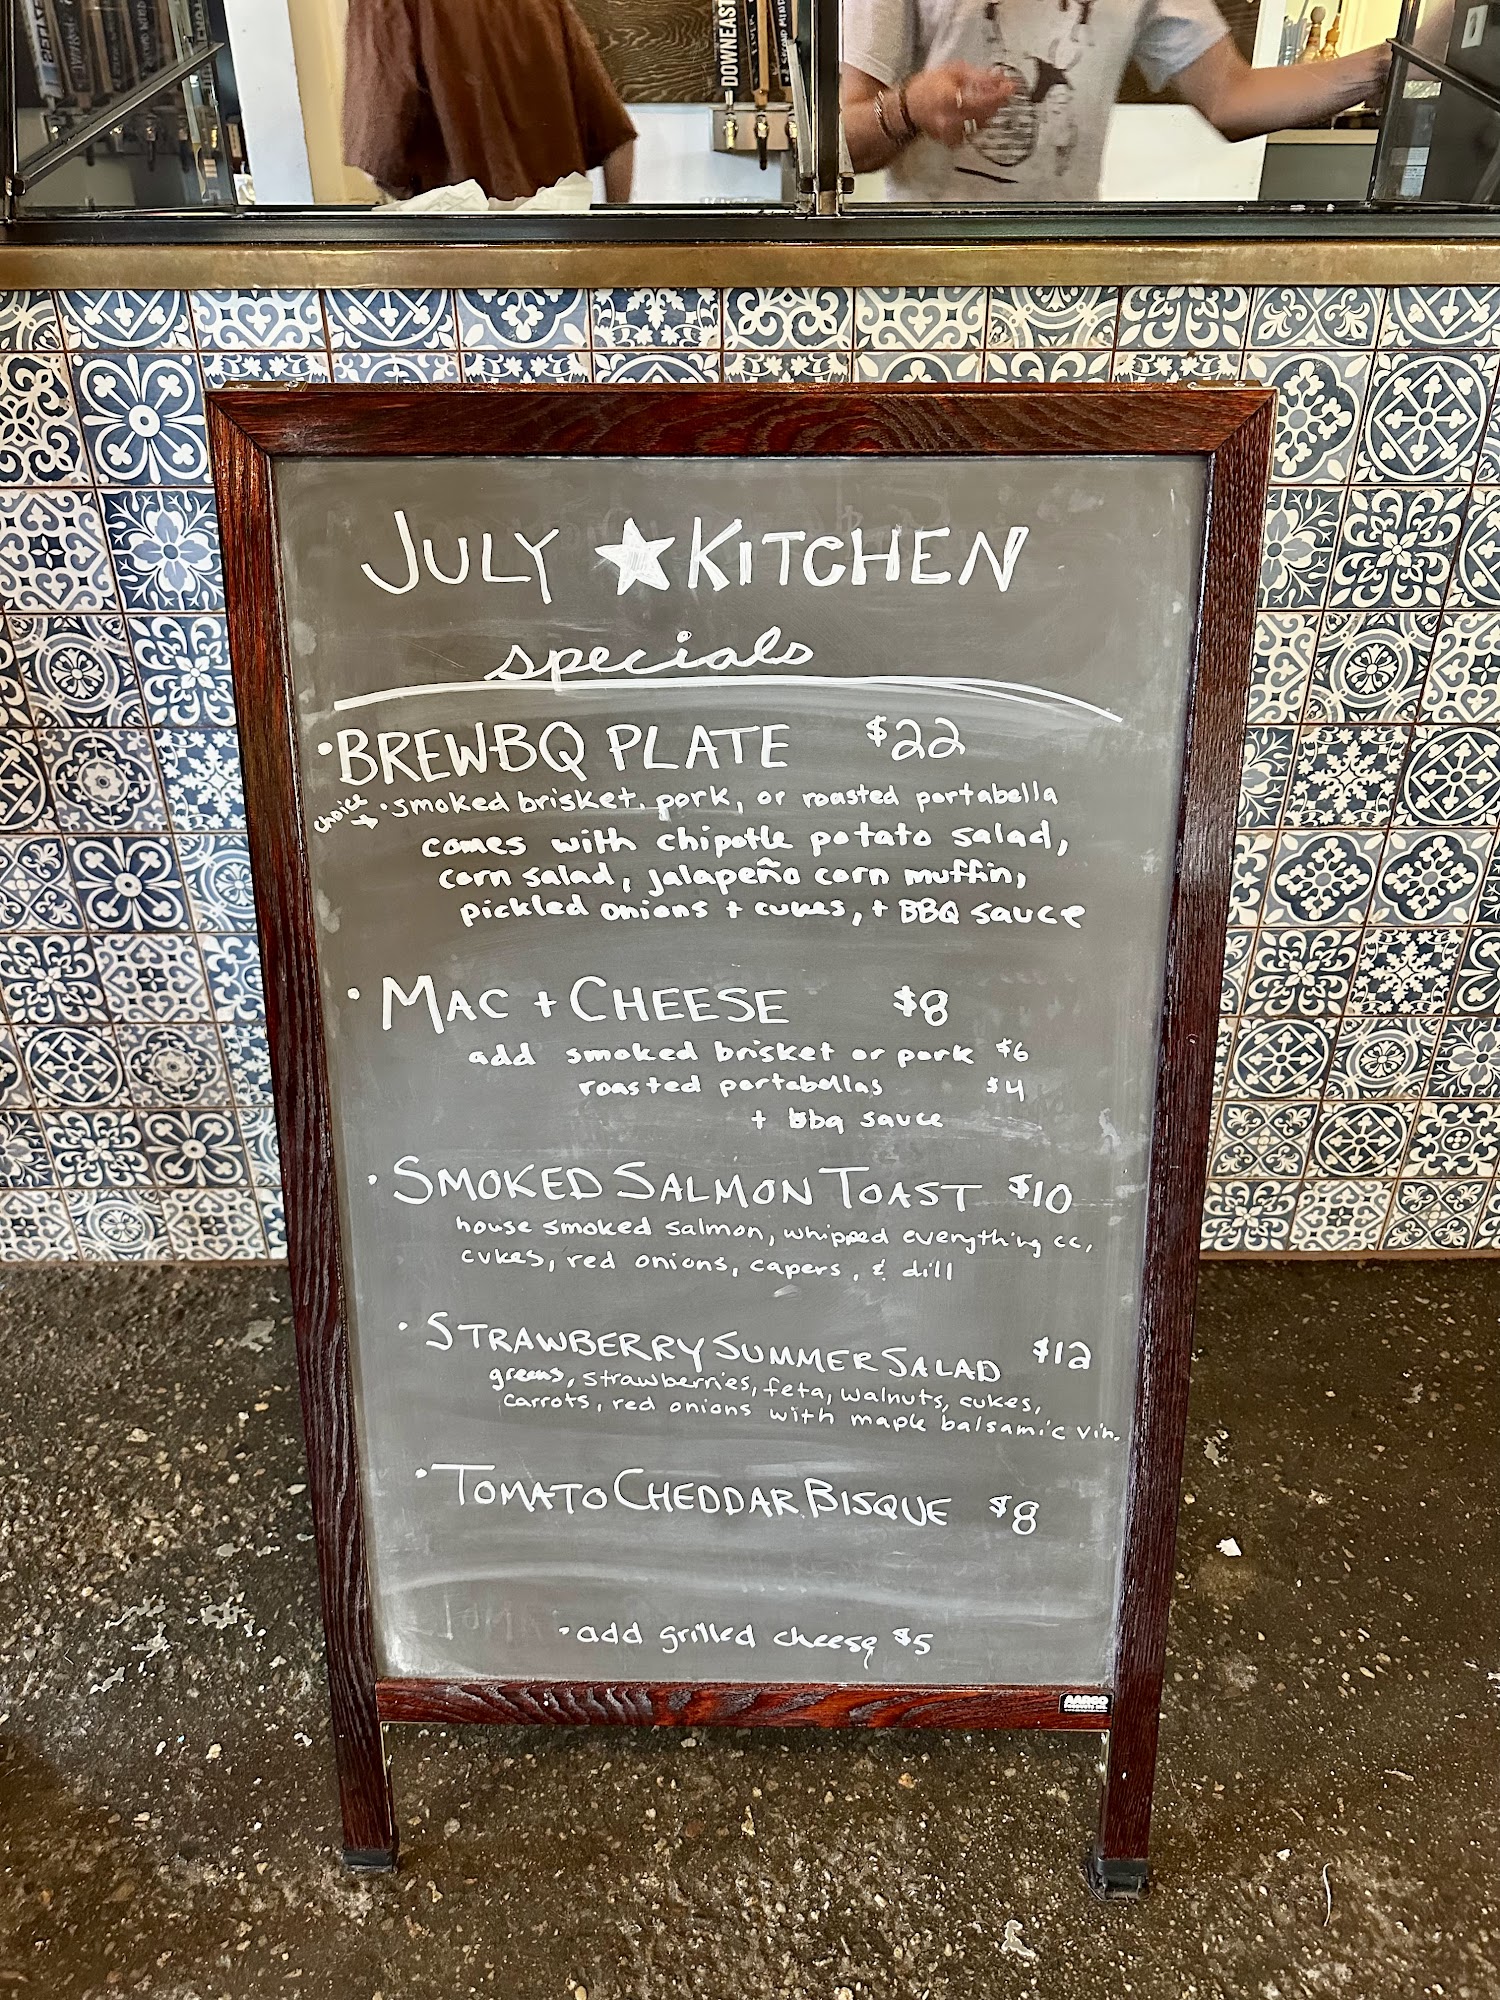 DOWNEAST
JULY ★ KITCHEN
specials
• BREWBQ PLATE $22
choice → • smoked brisket, pork, or roasted portabella
comes with chipotle potato salad,
corn salad, jalapeño corn muffin,
pickled onions + cukes, + BBQ sauce
• MAC + CHEESE $8
add smoked brisket or pork $6
roasted portabellas $4
+ bbq sauce
• SMOKED SALMON TOAST $10
house smoked salmon, whipped everything cc,
cukes, red onions, capers, & dill
• STRAWBERRY SUMMER SALAD $12
greens, strawberries, feta, walnuts, cukes,
carrots, red onions with maple balsamic vin.
• TOMATO CHEDDAR BISQUE $8
• add grilled cheese $5
AARCO